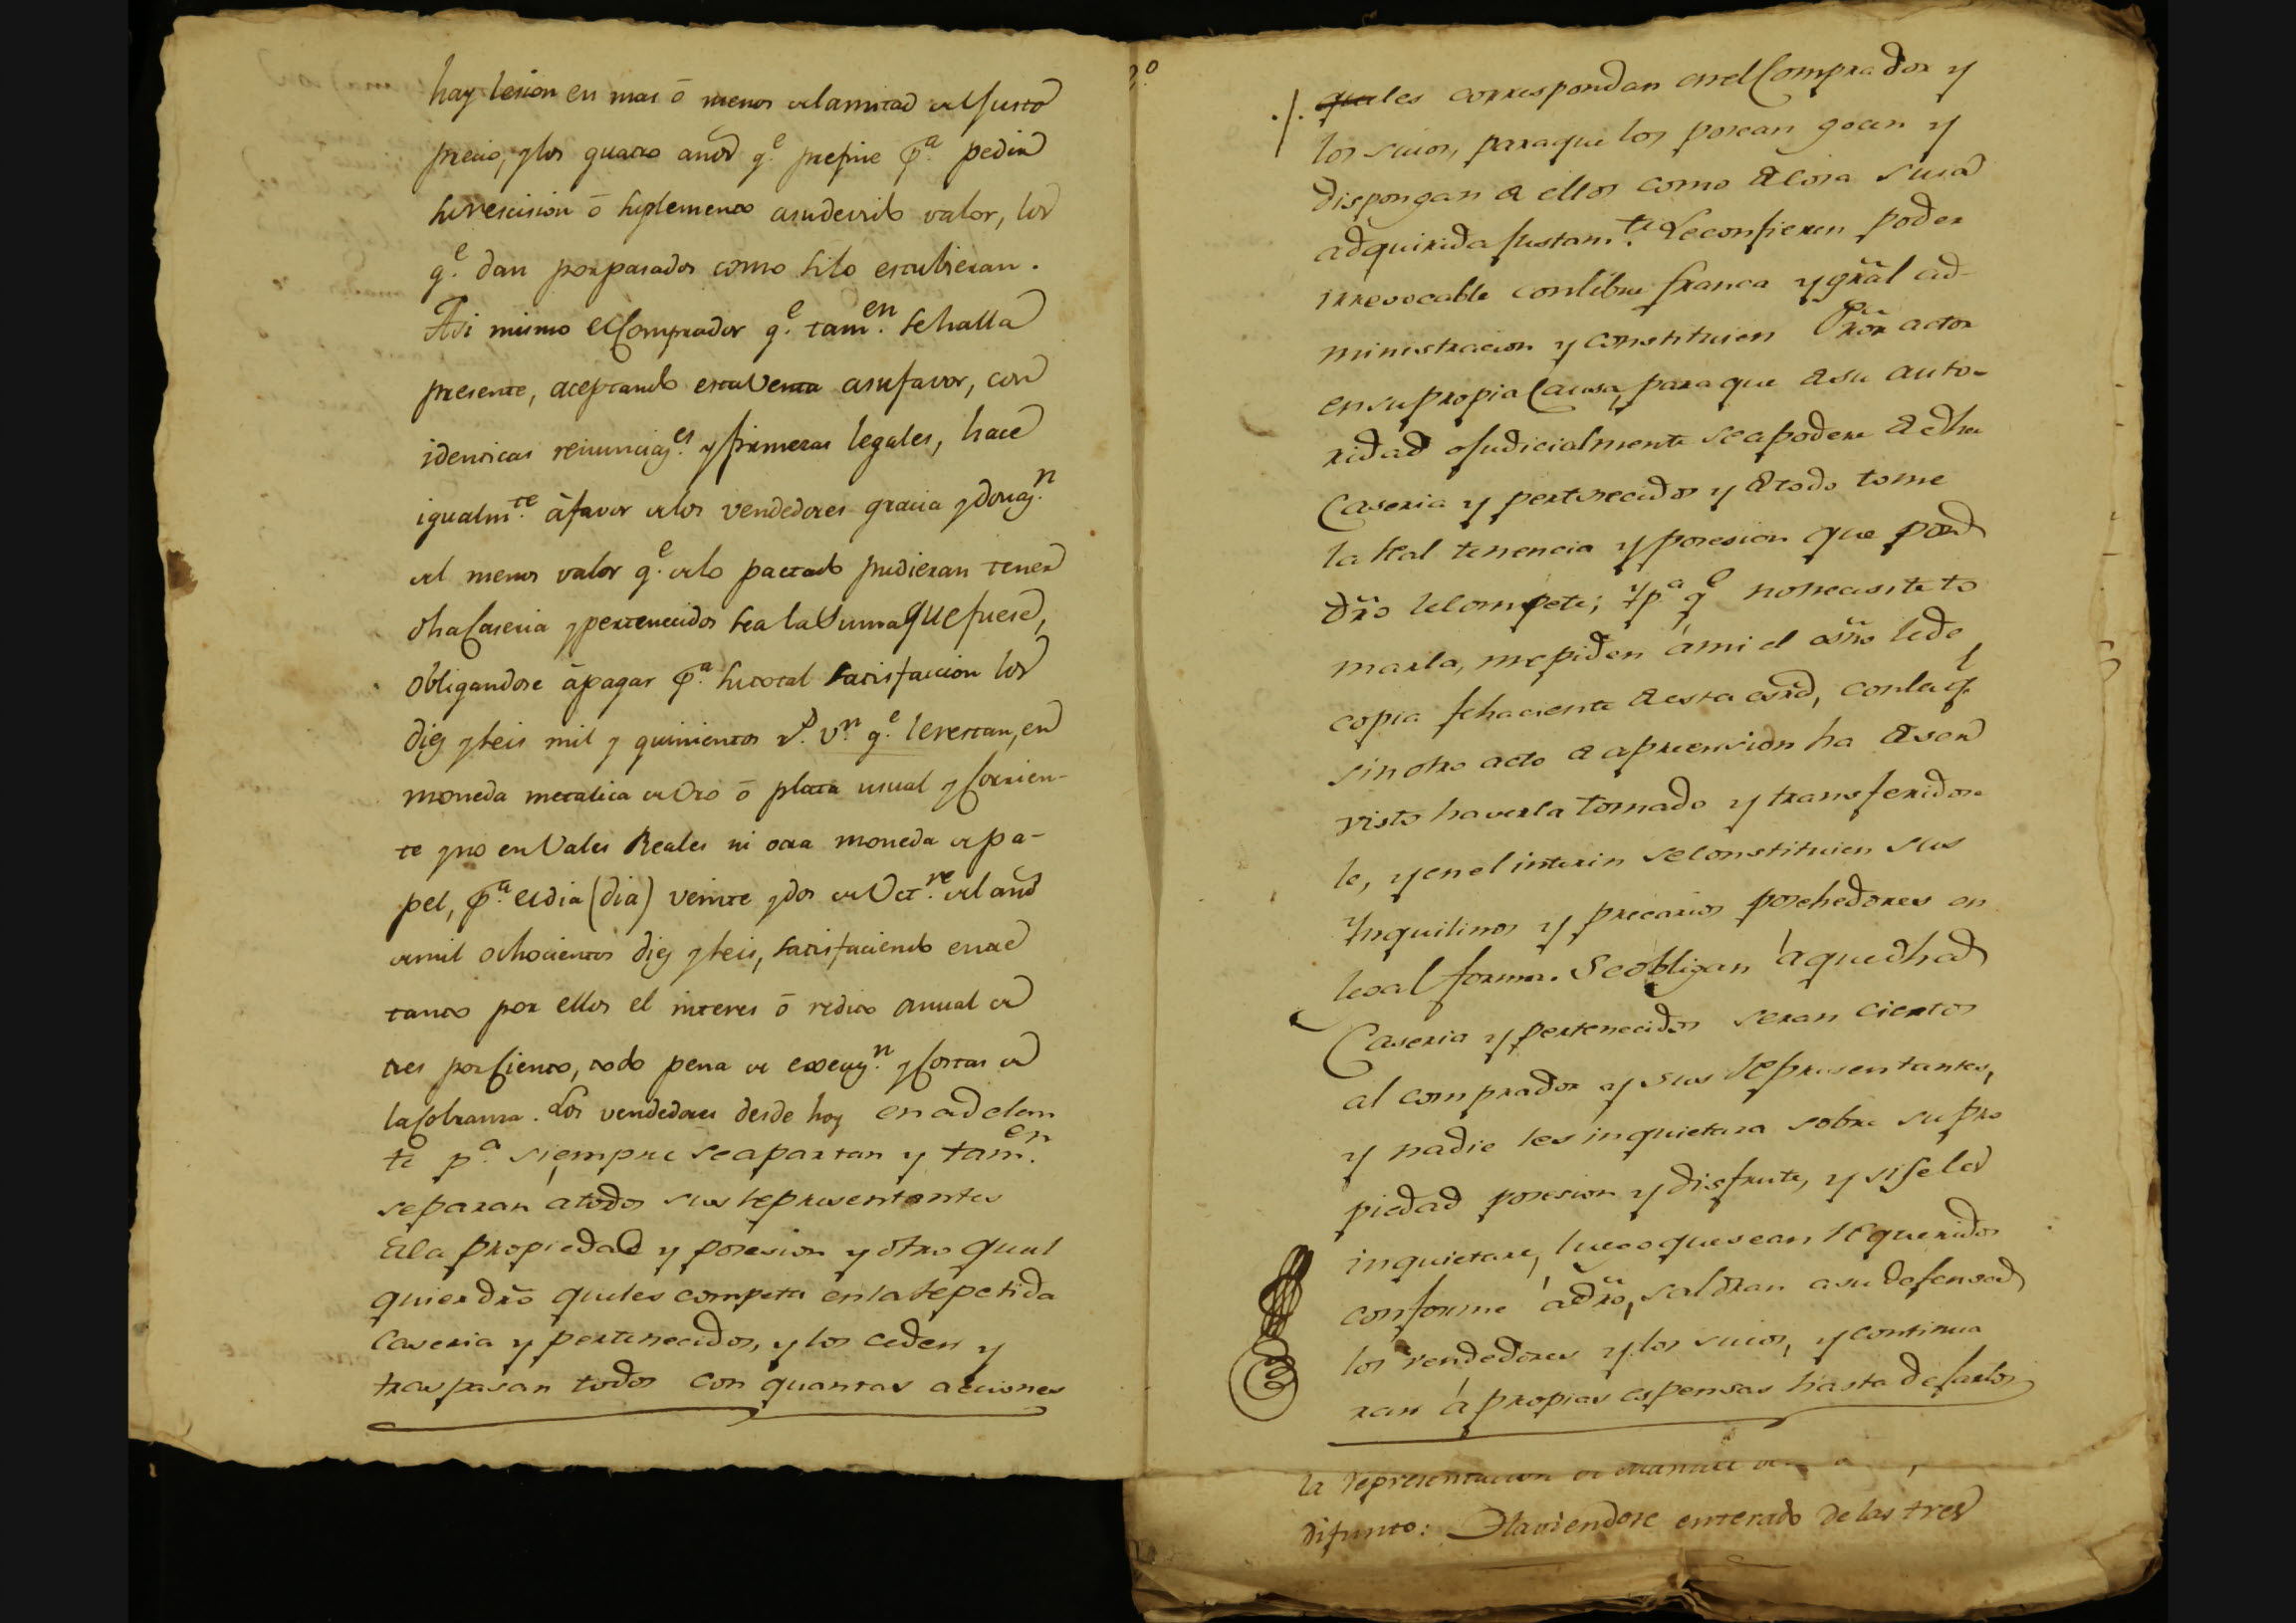 hay lesion en mas ó menos de la mitad del justo
precio, y los quatro años q.e prefine p.a pedir
su rescision ó suplemento a su devido valor, los
q.e dan por pasados como si lo estubieran.
Asi mismo el Comprador q.e tam.en se halla
presente, aceptando esta Venta a su favor, con
identicas renunciaz.es y firmezas legales, hace
igualm.te á favor de los vendedores gracia y donaz.n
del menos valor q.e de lo pactado pudieran tener
dha Caseria y pertenecidos sea la Suma que fuese,
obligandose á pagar p.a su total satisfaccion los
diez y seis mil y quinientos r.s v.n q.e le restan, en
moneda metalica de Oro ó plata usual y Corrien-
te y no en Vales Reales ni otra moneda de pa-
pel, p.a el dia (dia) veinte y dos de Oct.re del año
de mil ochocientos diez y seis, satisfaciendo entre
tanto por ellos el interes ó redito anual de
tres por Ciento, todo pena de execuz.n y Costas de
la Cobranza. Los vendedores desde hoy en adelan
te p.a siempre se apartan y tam.en
separan á todos sus representantes
de la propiedad y posesion y otro qual
quier dro que les competa en la repetida
Caseria y pertenecidos, y los ceden y
traspasan todos con quantas acciones
./. quales correspondan en el Comprador y
los suios, para que los posean gocen y
dispongan de ellos como de cosa suia
adquirida justam.te Le confieren poder
irrevocable con libre franca y gral ad-
ministracion y constituien Pror actor
en su propia Causa, para que de su auto-
ridad o judicialmente se apodere de dha
Caseria y pertenecidos y de todo tome
la Real tenencia y posesion que por
dro le Compete; y p.a q.e no necesite to
marla, me piden á mi el esno le dé
copia fehaciente de esta esra, con la q.l
sin otro acto de aprension ha de ser
visto haverla tomado y transferidose
le, y en el interin se Constituien sus
Ynquilinos y precarios posehedores en
legal forma. Se obligan á que dha
Caseria y pertenecidos seran ciertos
al comprador y sus Representantes,
y nadie les inquietara sobre su pro
piedad posesion y disfrute, y si se les
inquietare, luego que sean Requeridos
conforme á dro, saldran a su defensa
los vendedores y los suios, y continua
ran á propias espensas hasta dejarlos
la representacion de
difunto: Haviendose enterado de las tres